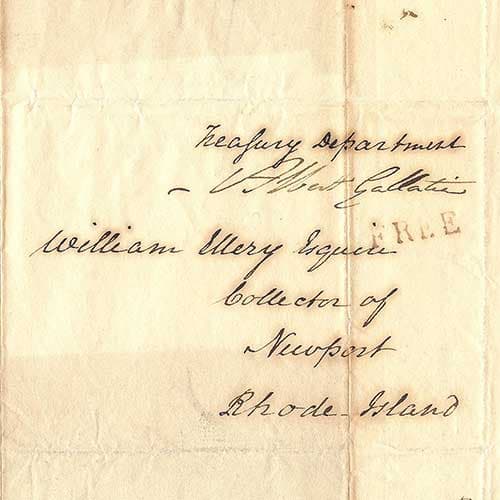 Treasury Department
Albert Gallatin
FREE
William Ellery Esquire
Collector of
Newport
Rhode-Island